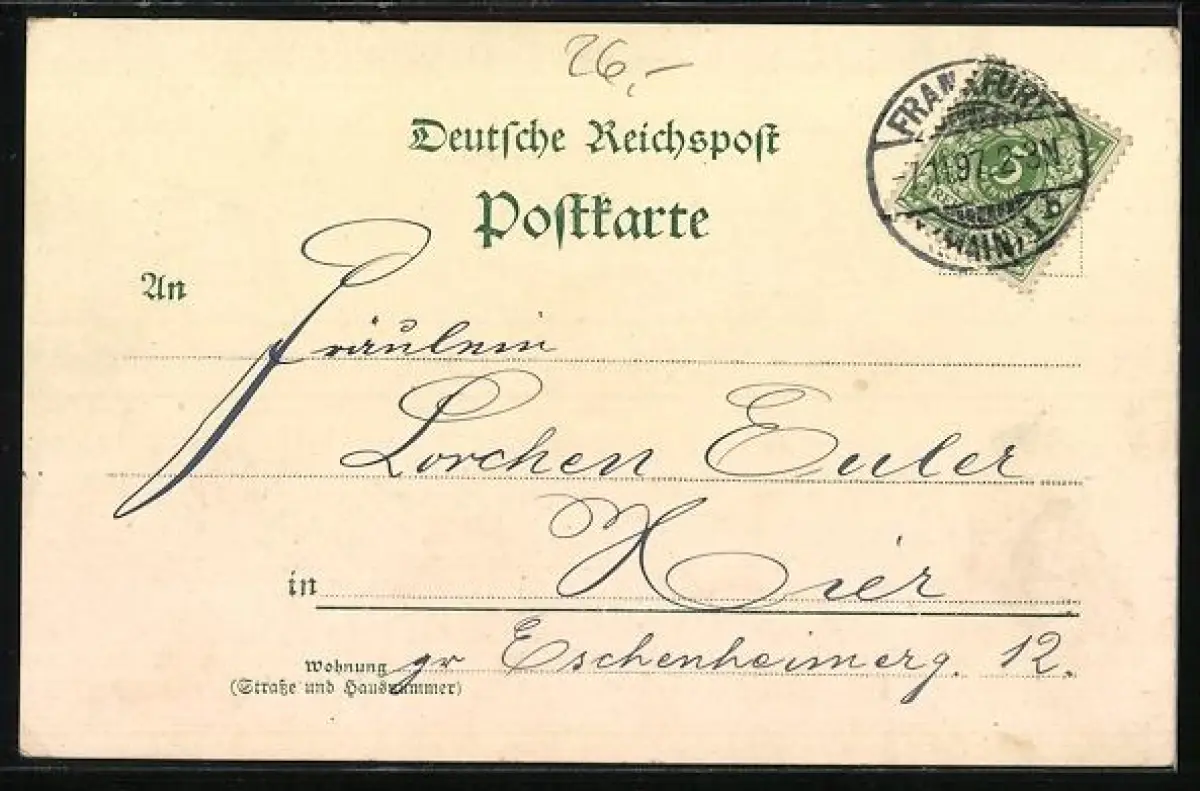 26,-
Deutsche Reichspost
Postkarte
FRANKFURT
7.11.97. 2-3N
(MAIN) 1 b
5
An
Fräulein
Lorchen Euler
in Hier
Wohnung gr Eschenheimerg. 12.
(Straße und Hausnummer)